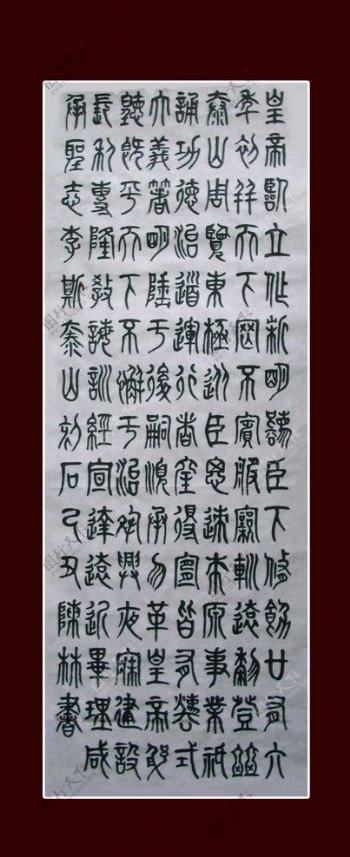 皇帝臨立作制明灋臣下脩飭廿有六
年初并天下罔不賓服寴巡遠黎登茲
泰山周覽東極從臣思迹本原事業祗
誦功德治道運行者產得宜皆有灋式
大義箸明陲于後嗣順承勿革皇帝躬
聽既平天下不懈于治夙興夜寐建設
長利專隆教誨訓經宣達遠近畢理咸
承聖志李斯泰山刻石己丑陳林書